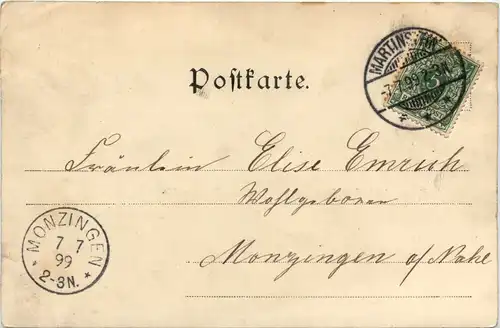 Postkarte.
MARTINSTEIN
7.7.99. 2-3N.
5
Fräulein Elise Emrich
Wohlgeboren
Monzingen a/Nahe
MONZINGEN
7 7
99
2-3N.